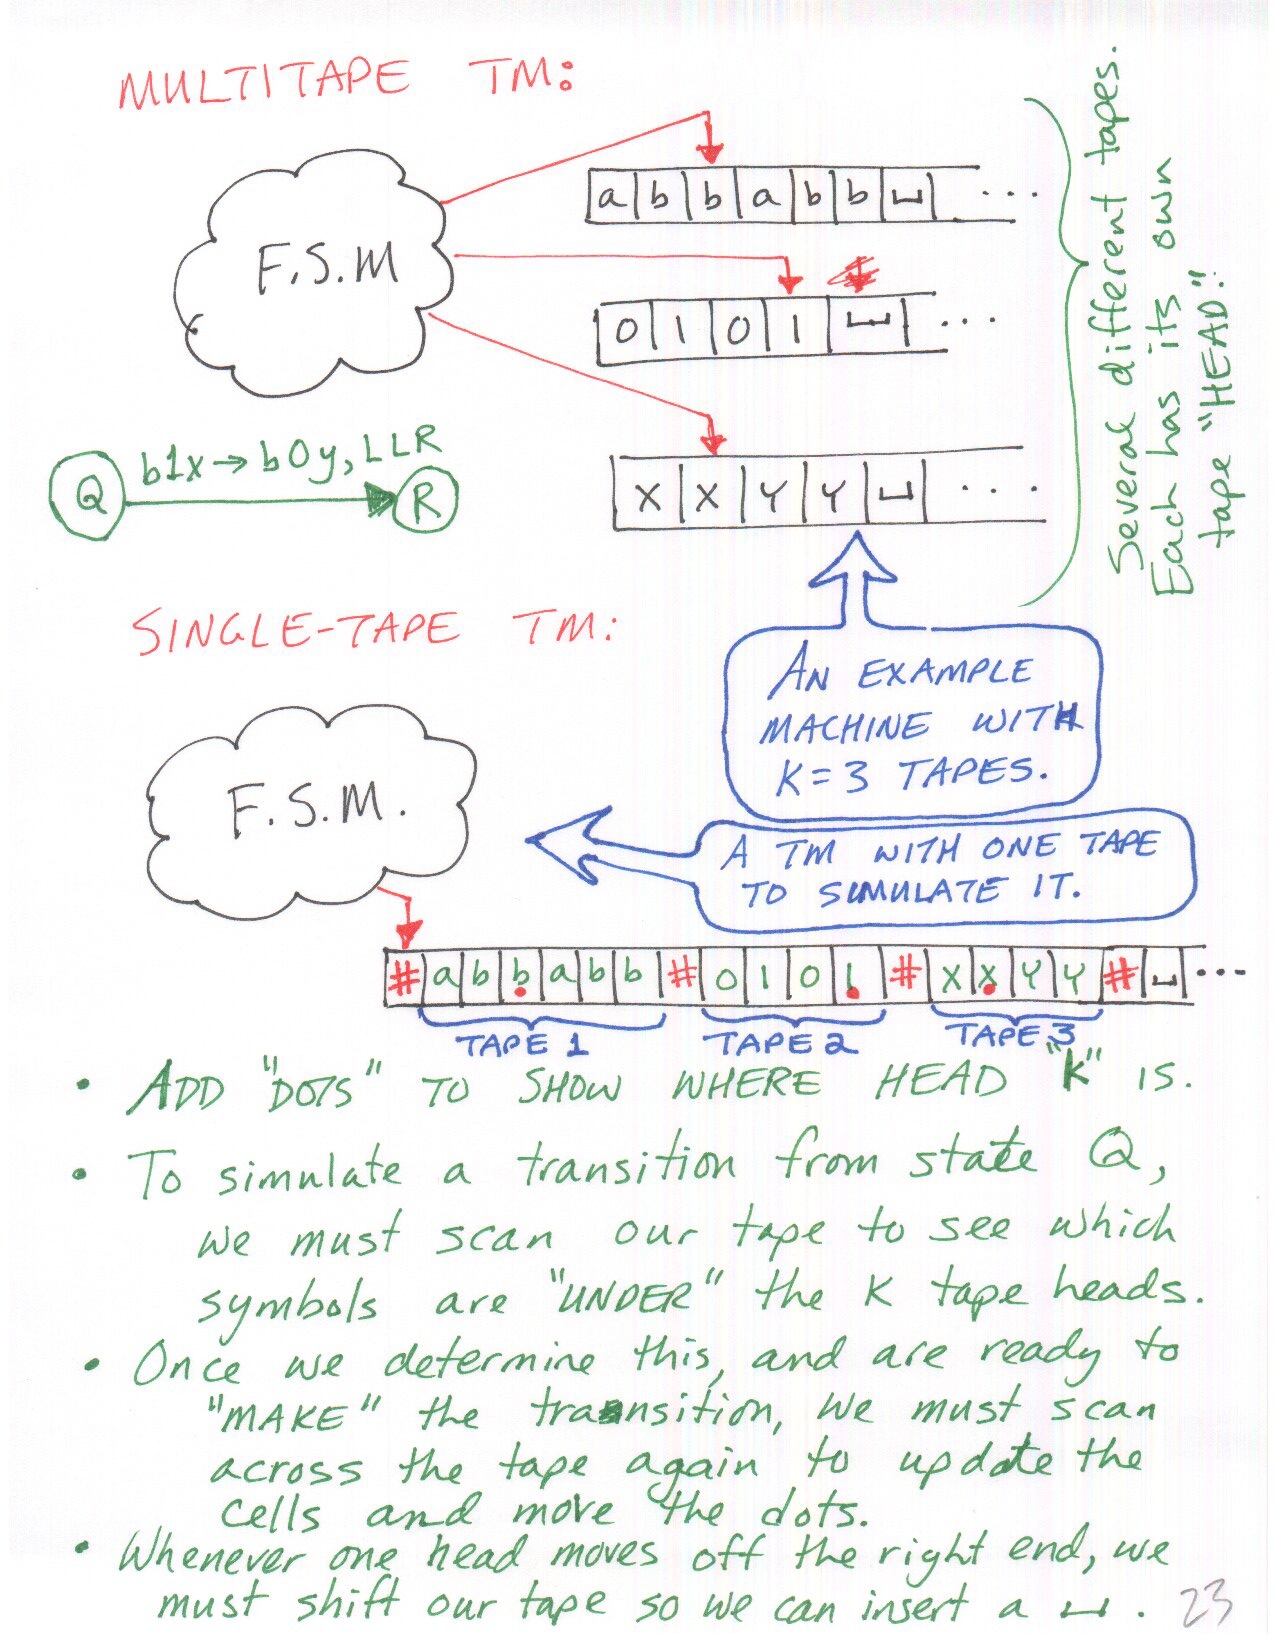 MULTITAPE TM:
F.S.M
a b b a b b ⊔ ...
0 1 0 1 ⊔ ...
X X Y Y ⊔ ...
Several different tapes.
Each has its own
tape "HEAD".
b1x→b0y, LLR
Q R
SINGLE-TAPE TM:
AN EXAMPLE
MACHINE WITH
K=3 TAPES.
F.S.M.
A TM WITH ONE TAPE
TO SIMULATE IT.
# a b b a b b # 0 1 0 1 # X X Y Y # ⊔ ...
TAPE 1 TAPE 2 TAPE 3
• ADD "DOTS" TO SHOW WHERE HEAD "K" IS.
• To simulate a transition from state Q,
we must scan our tape to see which
symbols are "UNDER" the K tape heads.
• Once we determine this, and are ready to
"MAKE" the transition, we must scan
across the tape again to update the
cells and move the dots.
• Whenever one head moves off the right end, we
must shift our tape so we can insert a ⊔.
23